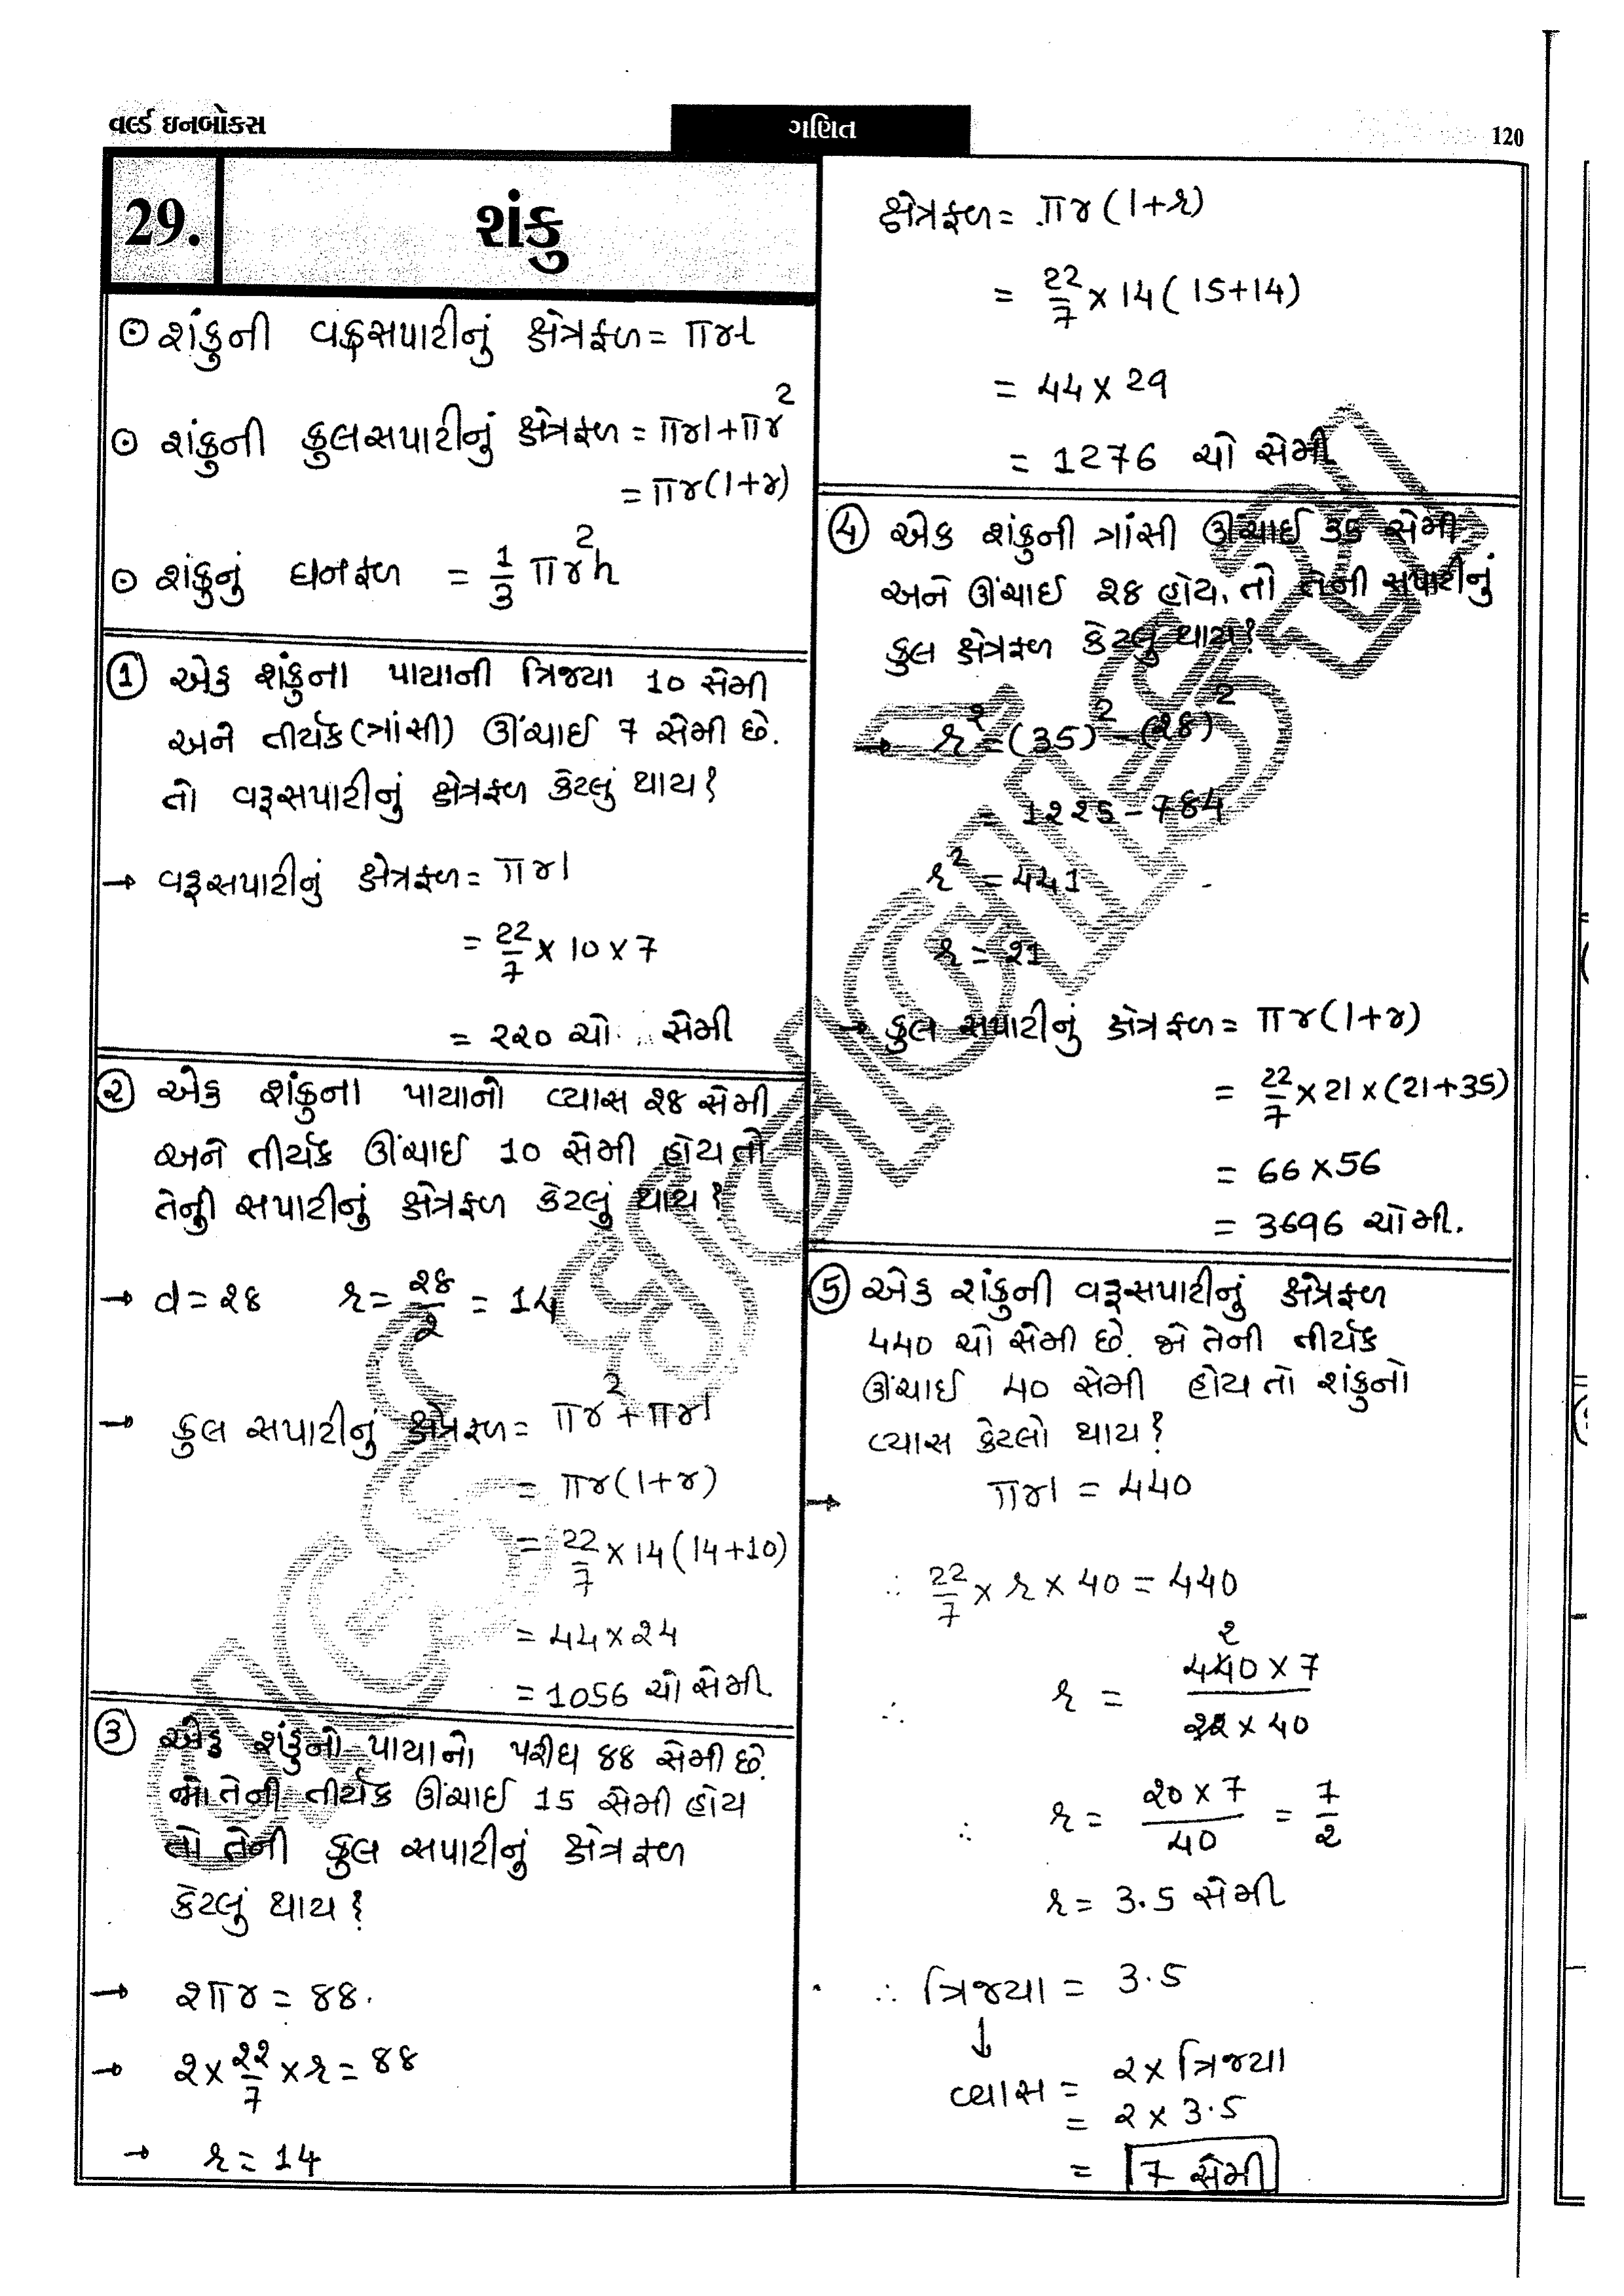 વર્લ્ડ ઇનબોક્સ
ગણિત
120
29.
શંકુ
⊙ શંકુની વક્રસપાટીનું ક્ષેત્રફળ = πrl
⊙ શંકુની કુલસપાટીનું ક્ષેત્રફળ = πrl + πr²
= πr(l+r)
⊙ શંકુનું ઘનફળ = 1/3 πr²h
① એક શંકુના પાયાની ત્રિજ્યા 10 સેમી
અને તીર્યક (ત્રાંસી) ઊંચાઈ 7 સેમી છે.
તો વક્રસપાટીનું ક્ષેત્રફળ કેટલું થાય?
→ વક્રસપાટીનું ક્ષેત્રફળ = πrl
= 22/7 × 10 × 7
= ૨૨૦ ચો સેમી
② એક શંકુના પાયાનો વ્યાસ ૨૪ સેમી
અને તીર્યક ઊંચાઈ 10 સેમી હોય તો
તેની સપાટીનું ક્ષેત્રફળ કેટલું થાય?
→ d = ૨૪ r = ૨૪/૨ = 14
→ કુલ સપાટીનું ક્ષેત્રફળ = πr² + πrl
= πr(l+r)
= 22/7 × 14 (14+10)
= 44 × ૨4
= 1056 ચો સેમી.
③ એક શંકુનો પાયાનો પરીઘ 88 સેમી છે.
જો તેની તીર્યક ઊંચાઈ 15 સેમી હોય
તો તેની કુલ સપાટીનું ક્ષેત્રફળ
કેટલું થાય?
→ ૨πr = 88.
→ ૨ × ૨૨/7 × r = 88
→ r = 14
ક્ષેત્રફળ = πr(l+r)
= 22/7 × 14 (15+14)
= 44 × 29
= 1276 ચો સેમી
④ એક શંકુની ત્રાંસી ઊંચાઈ 35 સેમી
અને ઊંચાઈ ૨૪ હોય, તો તેની સપાટીનું
કુલ ક્ષેત્રફળ કેટલું થાય?
→ r² = (35)² - (૨8)²
= 1૨૨5 - 784
r² = 441
r = ૨1
→ કુલ સપાટીનું ક્ષેત્રફળ = πr(l+r)
= 22/7 × 21 × (21+35)
= 66 × 56
= 3696 ચોમી.
⑤ એક શંકુની વક્રસપાટીનું ક્ષેત્રફળ
440 ચો સેમી છે. જો તેની તીર્યક
ઊંચાઈ 40 સેમી હોય તો શંકુનો
વ્યાસ કેટલો થાય?
→ πrl = 440
∴ 22/7 × r × 40 = 440
૨
∴ r = 440 × 7 / ૨૨ × 40
∴ r = ૨0 × 7 / 40 = 7/૨
r = 3.5 સેમી
∴ ત્રિજ્યા = 3.5
↓
વ્યાસ = ૨ × ત્રિજ્યા
= ૨ × 3.5
= 7 સેમી